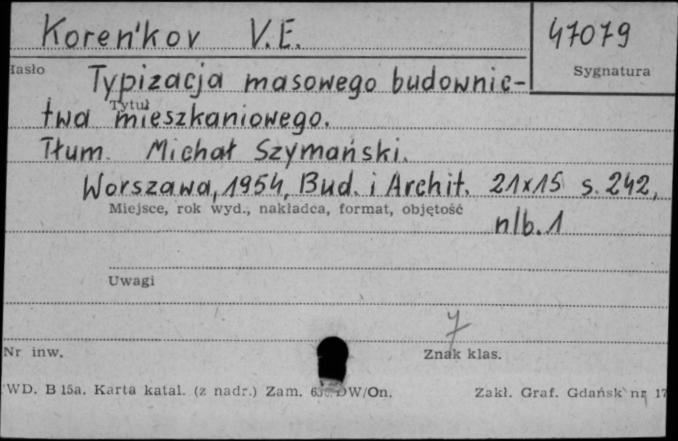 Koren'kov V.E.
47079
Sygnatura
Hasło
Typizacja masowego budownic-
Tytuł
twa mieszkaniowego.
Tłum. Michał Szymański.
Warszawa, 1954, Bud. i Archit. 21x15 s. 242,
Miejsce, rok wyd., nakładca, format, objętość
nlb. 1
Uwagi
7
Nr inw.
Znak klas.
WD. B 15a. Karta katal. (z nadr.) Zam. DW/On.
Zakł. Graf. Gdańsk nr 17